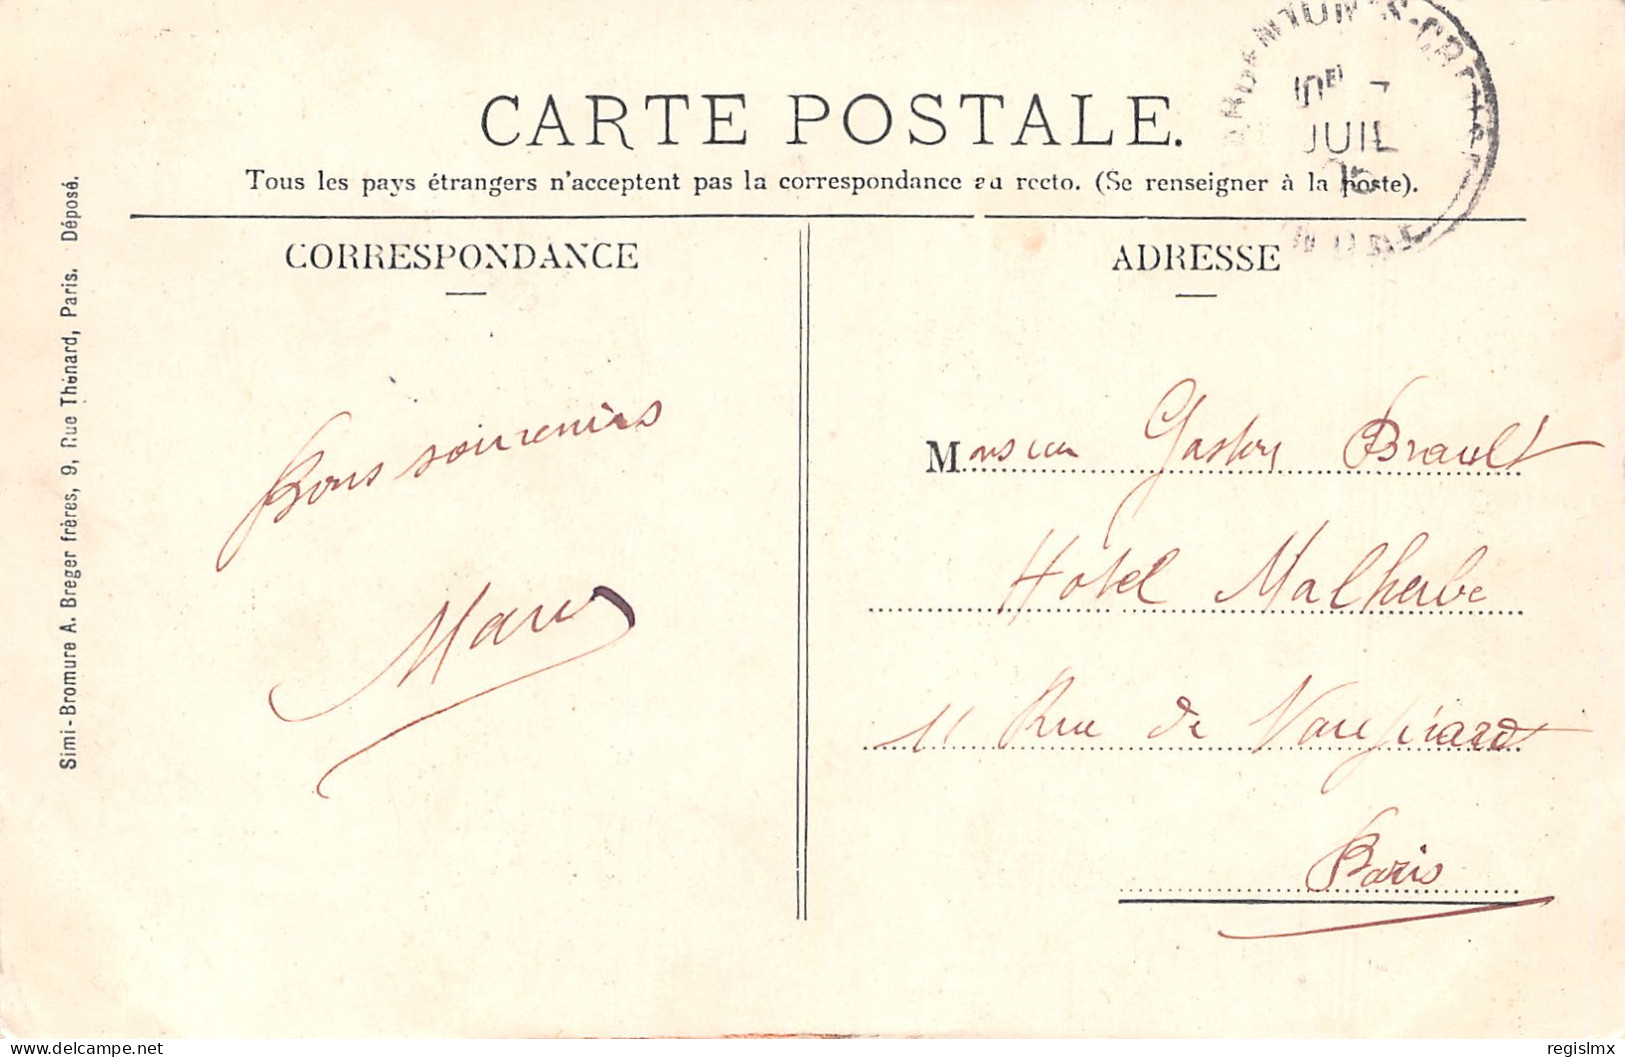 CARTE POSTALE.
Tous les pays étrangers n'acceptent pas la correspondance au recto. (Se renseigner à la poste).
CORRESPONDANCE
ADRESSE
Bons souvenirs
Monsieur Gaston Brault
Hotel Malherbe
11 Rue de Vaugirard
Paris
Simi-Bromure A. Breger frères, 9, Rue Thénard, Paris. Déposé.
JUIL
delcampe.net
regislmx